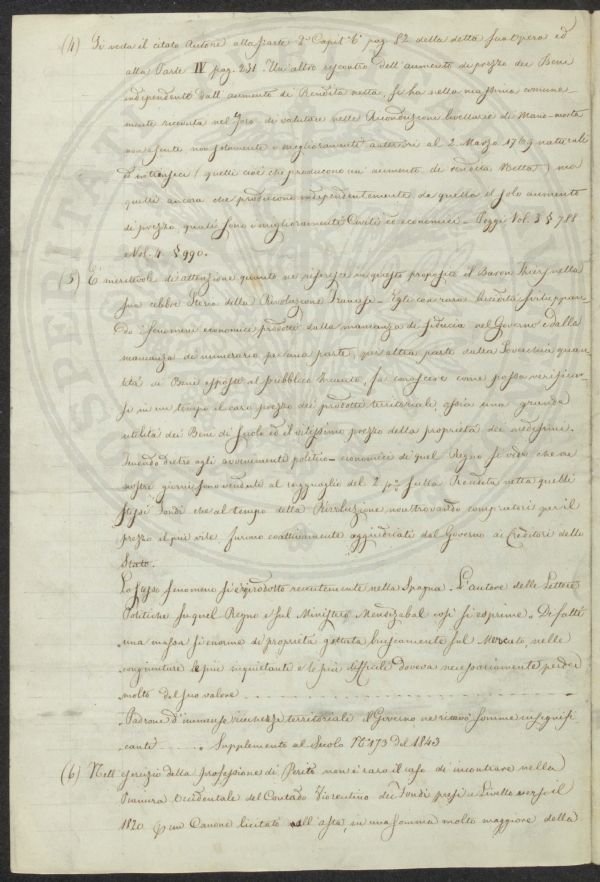 (4) Si veda il citato Autore alla parte 2ª Capit. 6º pag. 82 della detta sua Opera ed
alla Parte IV pag. 231. Un altro riscontro dell'aumento di prezzo dei Beni
indipendente dall'aumento di Rendita netta, si ha nella massima comune-
mente ricevuta nel Foro di valutare nelle Riconduzioni livellarie di Mano-morta
non solamente i miglioramenti anteriori al 2. Marzo 1769 naturali
ed intrinseci (quelli cioè che producono un aumento di rendita Netta) ma
quelli ancora che producono indipendentemente da quella il solo aumento
di prezzo, quali sono i miglioramenti Civili ed economici - Poggi Vol. 3 § 788
e Vol. 4. § 990.
(5) È meritevole di attenzione quanto ne riferisce in questo proposito il Baron Thiers nella
sua celebre Storia della Rivoluzione Francese - Egli con rara sviluppan-
do i fenomeni economici prodotti dalla mancanza di fiducia nel Governo e dalla
mancanza di numerario per una parte, per altra parte dalla soverchia quan-
tità di Beni esposti al pubblico Incanto, fa conoscere come possa verificar-
si in un tempo il caro prezzo dei prodotti territoriali ossia una grande
utilità dei Beni di suolo ed il vilissimo prezzo della proprietà dei medesimi.
Tenendo dietro agli avvenimenti politico-economici di quel Regno si vede che ai
nostri giorni sono venduti al ragguaglio del 2 p% sulla Rendita netta quelli
stessi Fondi che al tempo della Rivoluzione non trovando compratori per il
prezzo il più vile furono coattivamente aggiudicati dal Governo ai Creditori dello
Stato.
Lo stesso fenomeno si è prodotto recentemente nella Spagna. L'autore delle Lettere
Politiche su quel Regno e sul Ministero Mendizabal così si esprime. Di fatti
una massa sì enorme di proprietà gettata bruscamente sul Mercato, nelle
congiunture le più inquietanti e le più difficili doveva necessariamente perder
molto del suo valore
Padrone d'immense ricchezze territoriali il Governo ne ricavò somme insignifi-
canti. Supplemento al Secolo Nº 173 del 1843
(6) Nell'esercizio della professione di Perito non è raro il caso di incontrare nella
Pianura Occidentale del Contado Fiorentino dei Fondi presi a Livello verso il
1820 p un Canone licitato all'asta, in una somma molto maggiore della